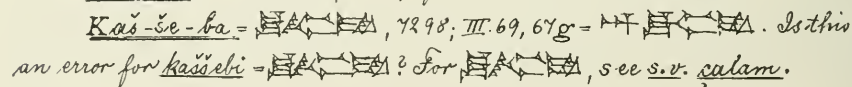 Kaš-še-ba = , 7298; III. 69, 67g = . Is this
an error for kaššebi = ? For , see s.v. çalam.